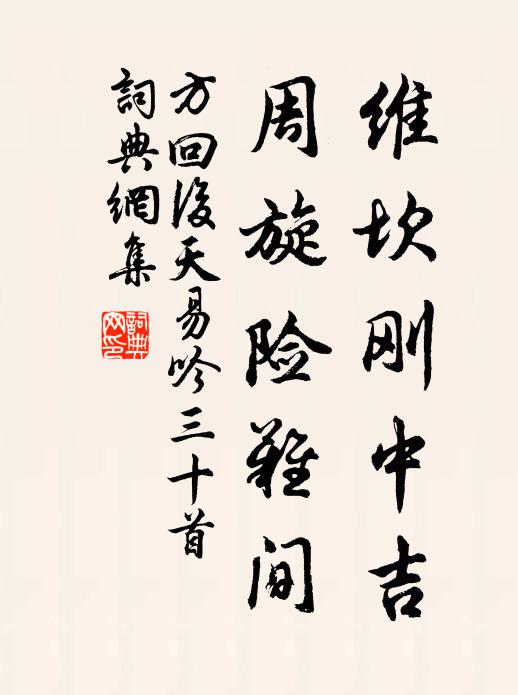 维坎刚中吉
周旋险難间
方回後天易吟三十首
詞典網集
詞典網印